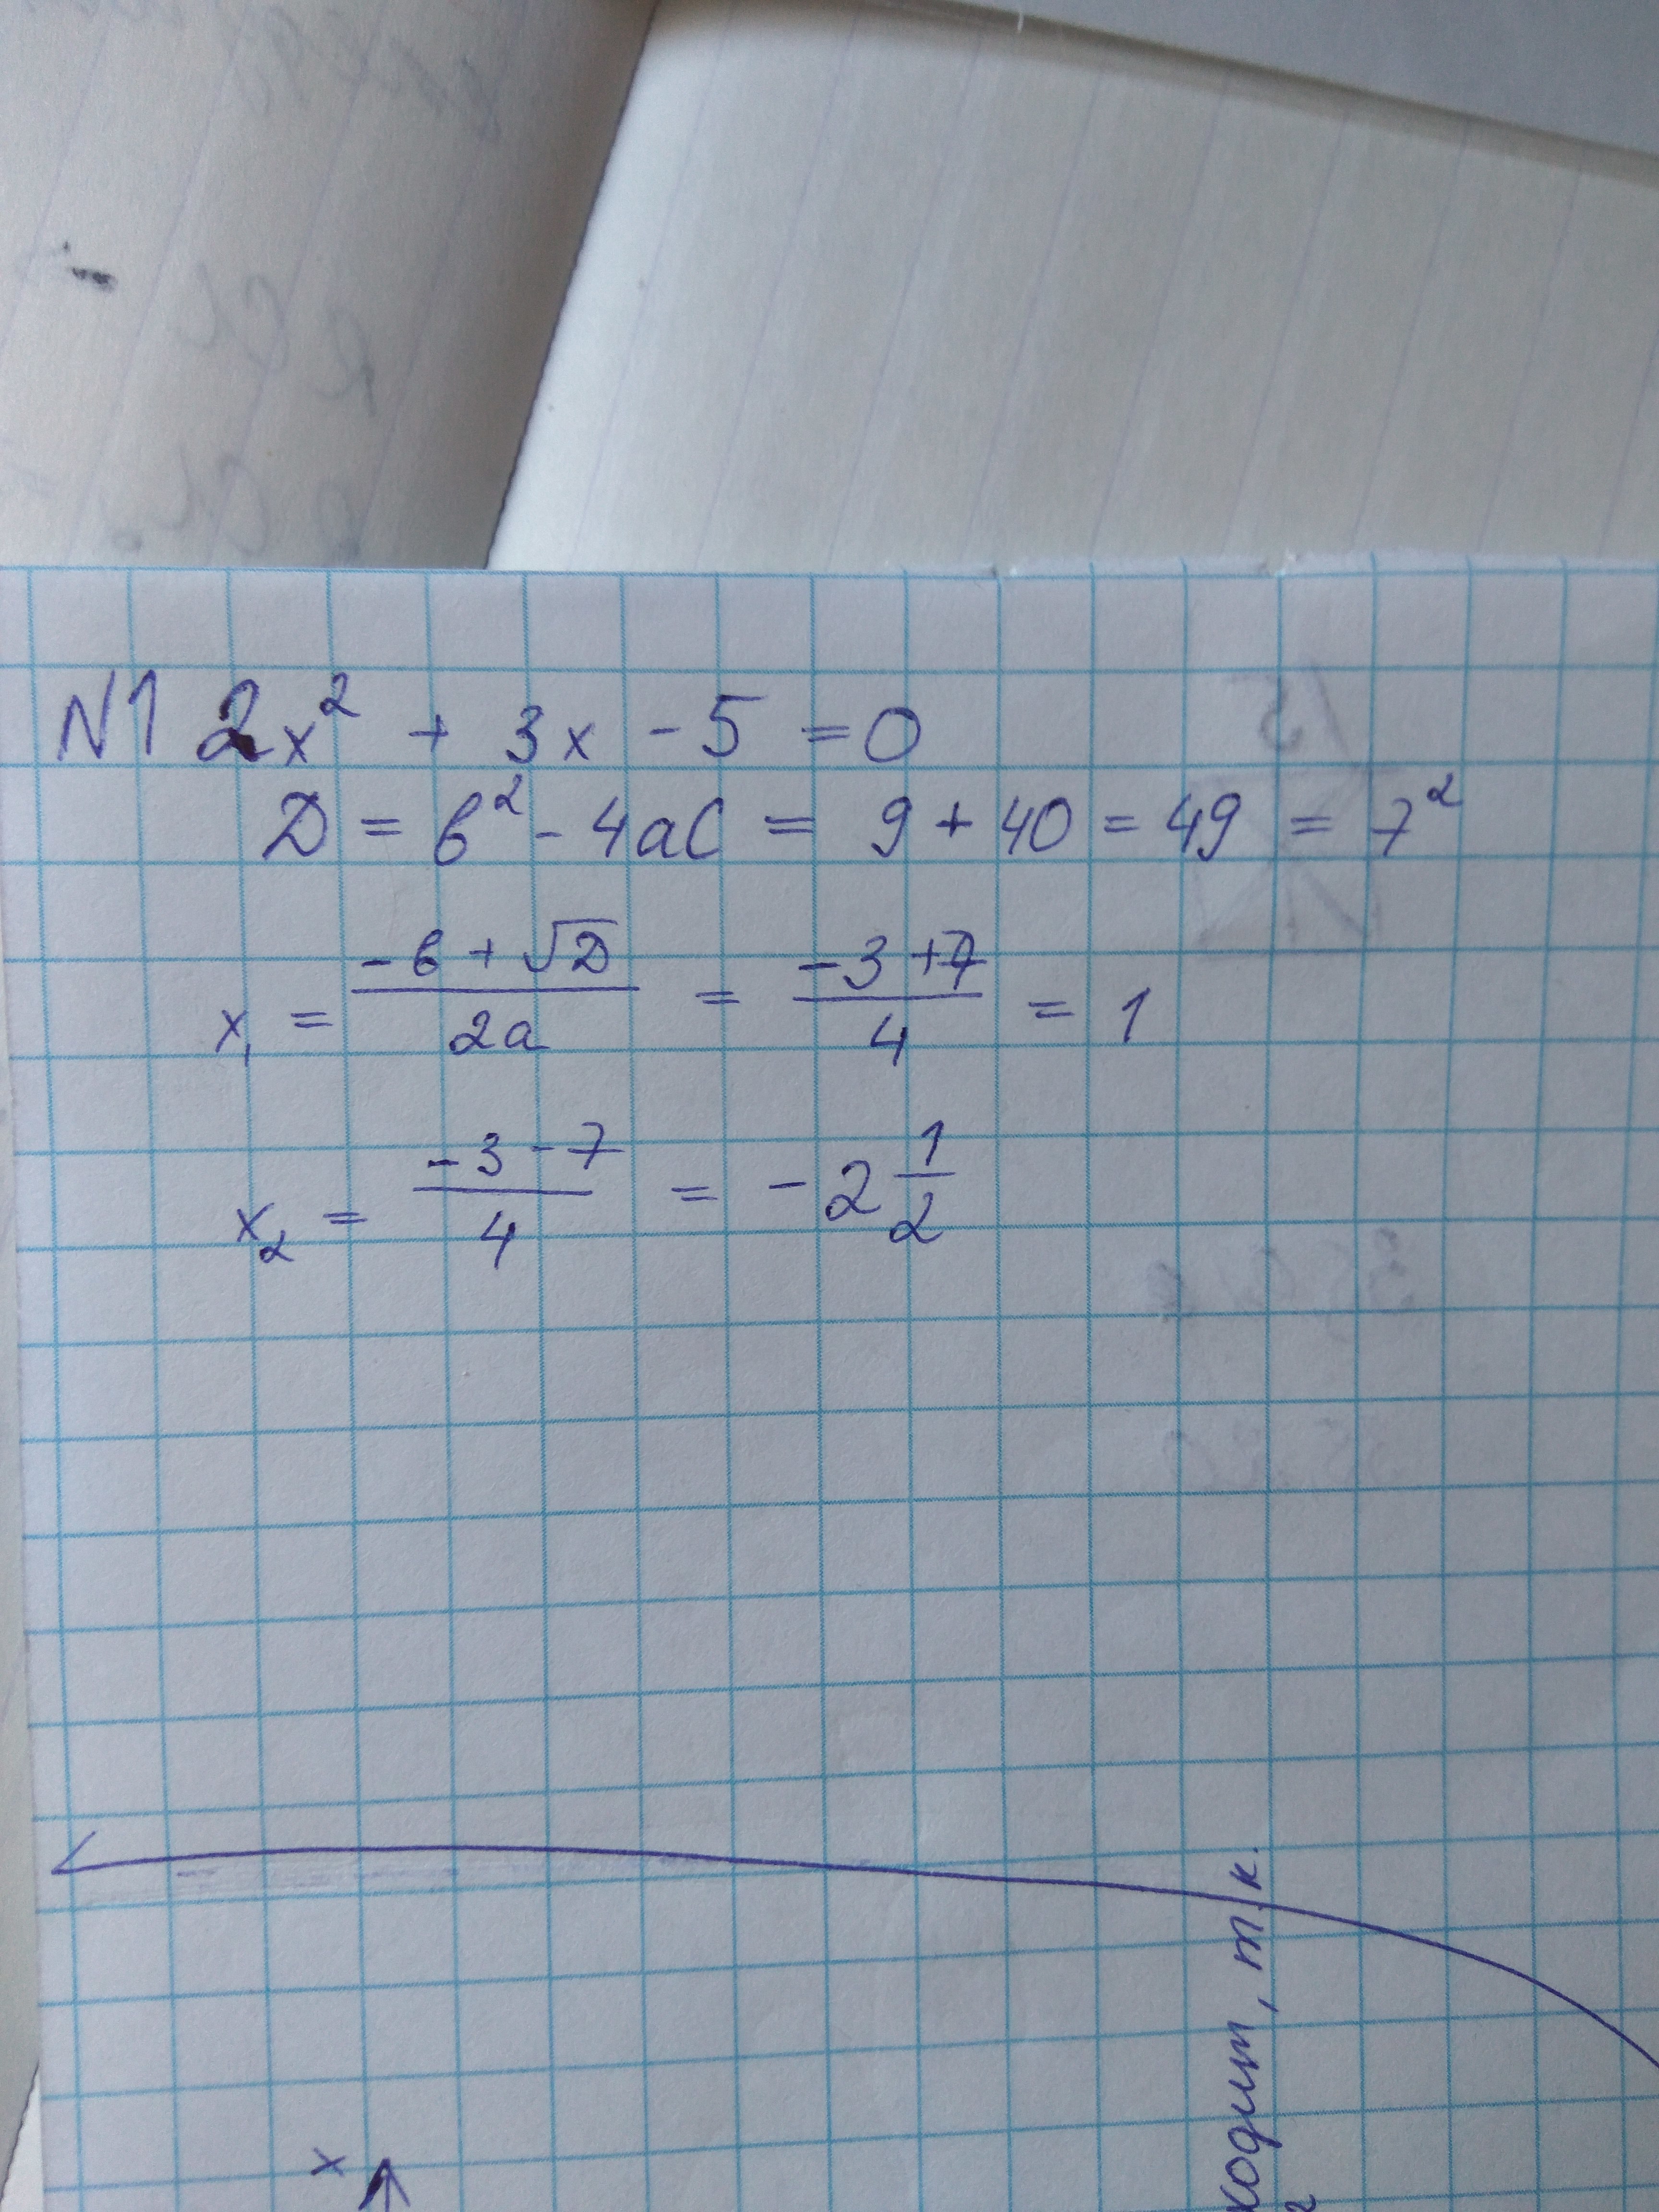 N1 2x² + 3x - 5 = 0
D = в² - 4ac = 9 + 40 = 49 = 7²
x₁ = (-в + √D)/(2a) = (-3 + 7)/4 = 1
x₂ = (-3 - 7)/4 = -2 1/2
ходит, т.к.
x